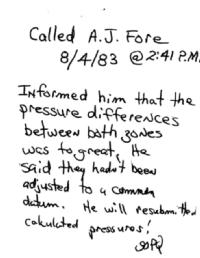 Called A.J. Fore
8/4/83 @ 2:41 P.M.
Informed him that the
pressure differences
between both zones
was to great, He
said they hadn't been
adjusted to a common
datum. He will resubmit the
calculated pressures!